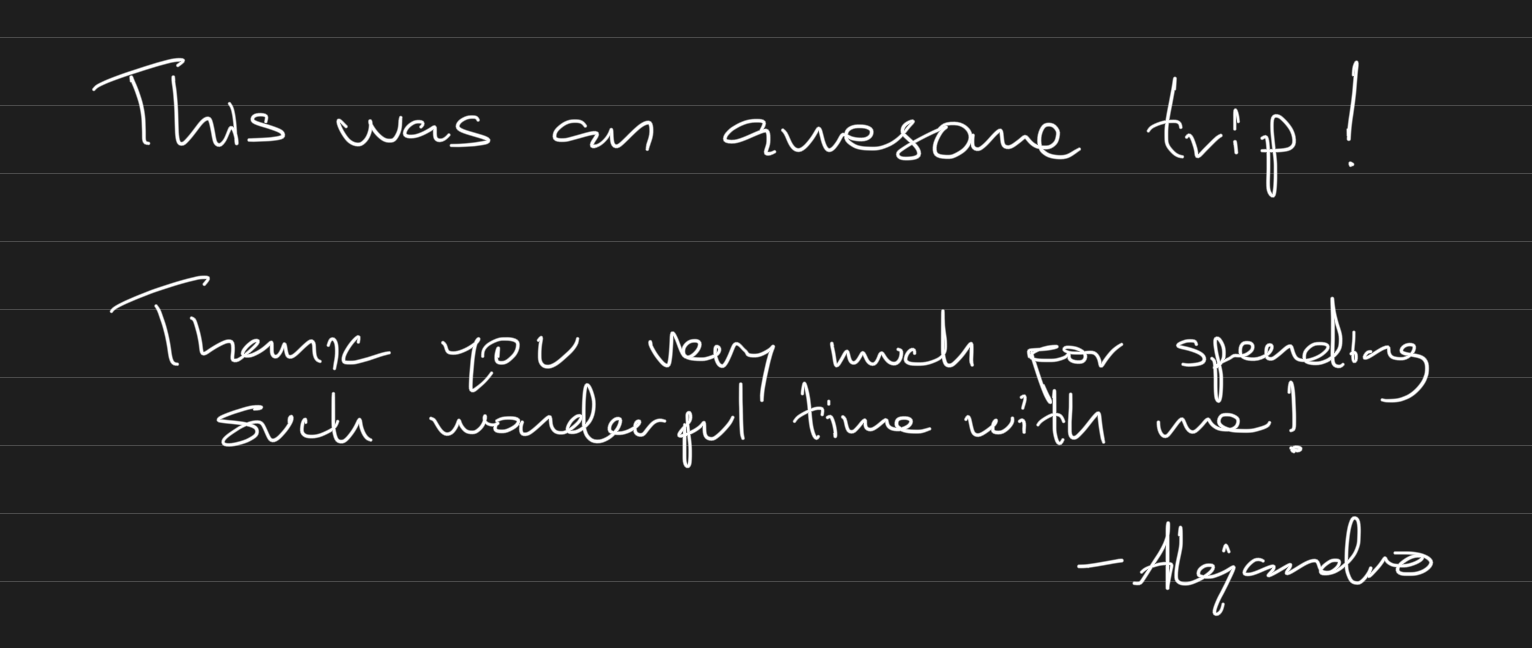 This was an awesome trip!
Thank you very much for spending
such wonderful time with me!
- Alejandro